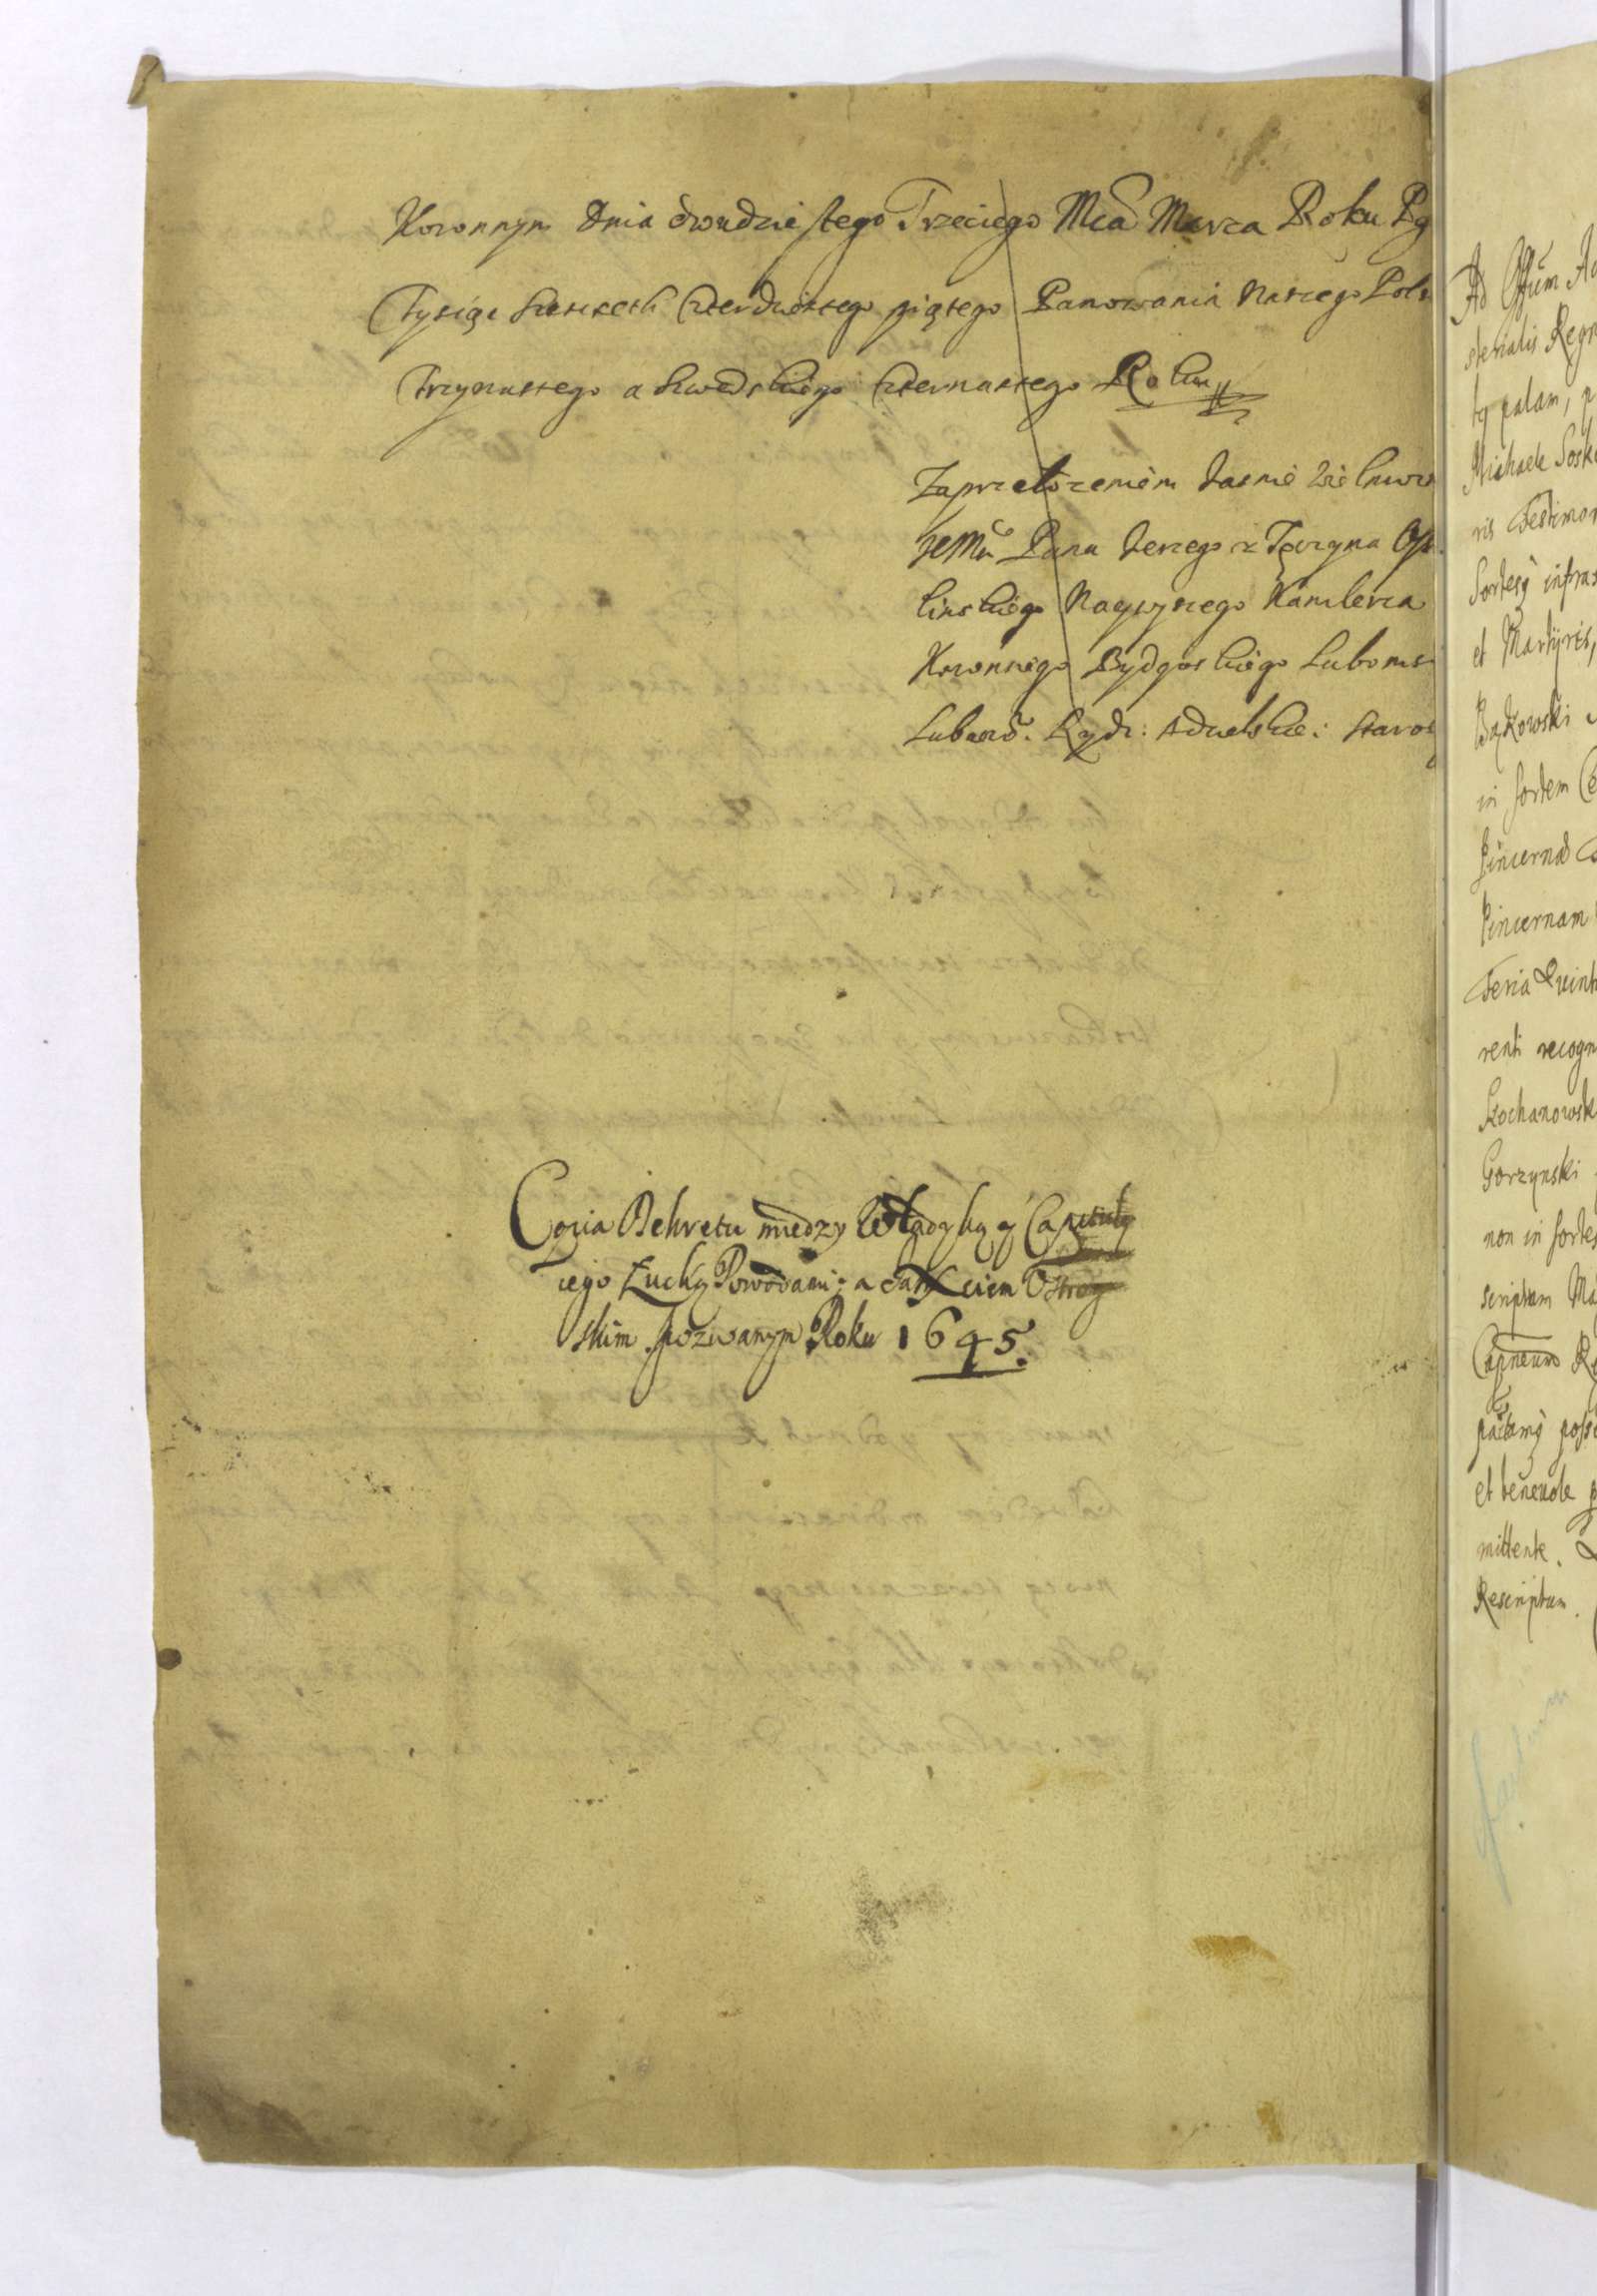 Koronnym Dnia dwudziestego Trzeciego Mca Marca Roku Pg
Tysiąc szesceth czterdziestego piątego Panowania Naszego Pols
Trzynastego a Szwedskiego czternastego Roku
Za przełożeniem Jasnie Wielmoż
Pana Jerzego z Tęczyna Os
linskiego Naywyszego Kanclerza
Koronnego Bydgoskiego Luboms
Lubacz. Rydz: Adzelskie: Staros
Copia Dekretu miedzy Władyką y Capitułą
iego Łucką Powodami; a Xciem Ostrog
skim pozwanym Roku 1645.
Ad Offum Ac
sterialis Regn
tq palam, p
Michaele Sosk
ris Testimon
Sortesq infras
et Martyris,
Bąkowski
in sortem Ce
Pincerna
Pincernam
Feria Quint
renti recogn
Kochanowsk
Gorzynski
non in sortes
scriptam Ma
Capneum R
poss
et benevole p
mittente.
Rescriptum.